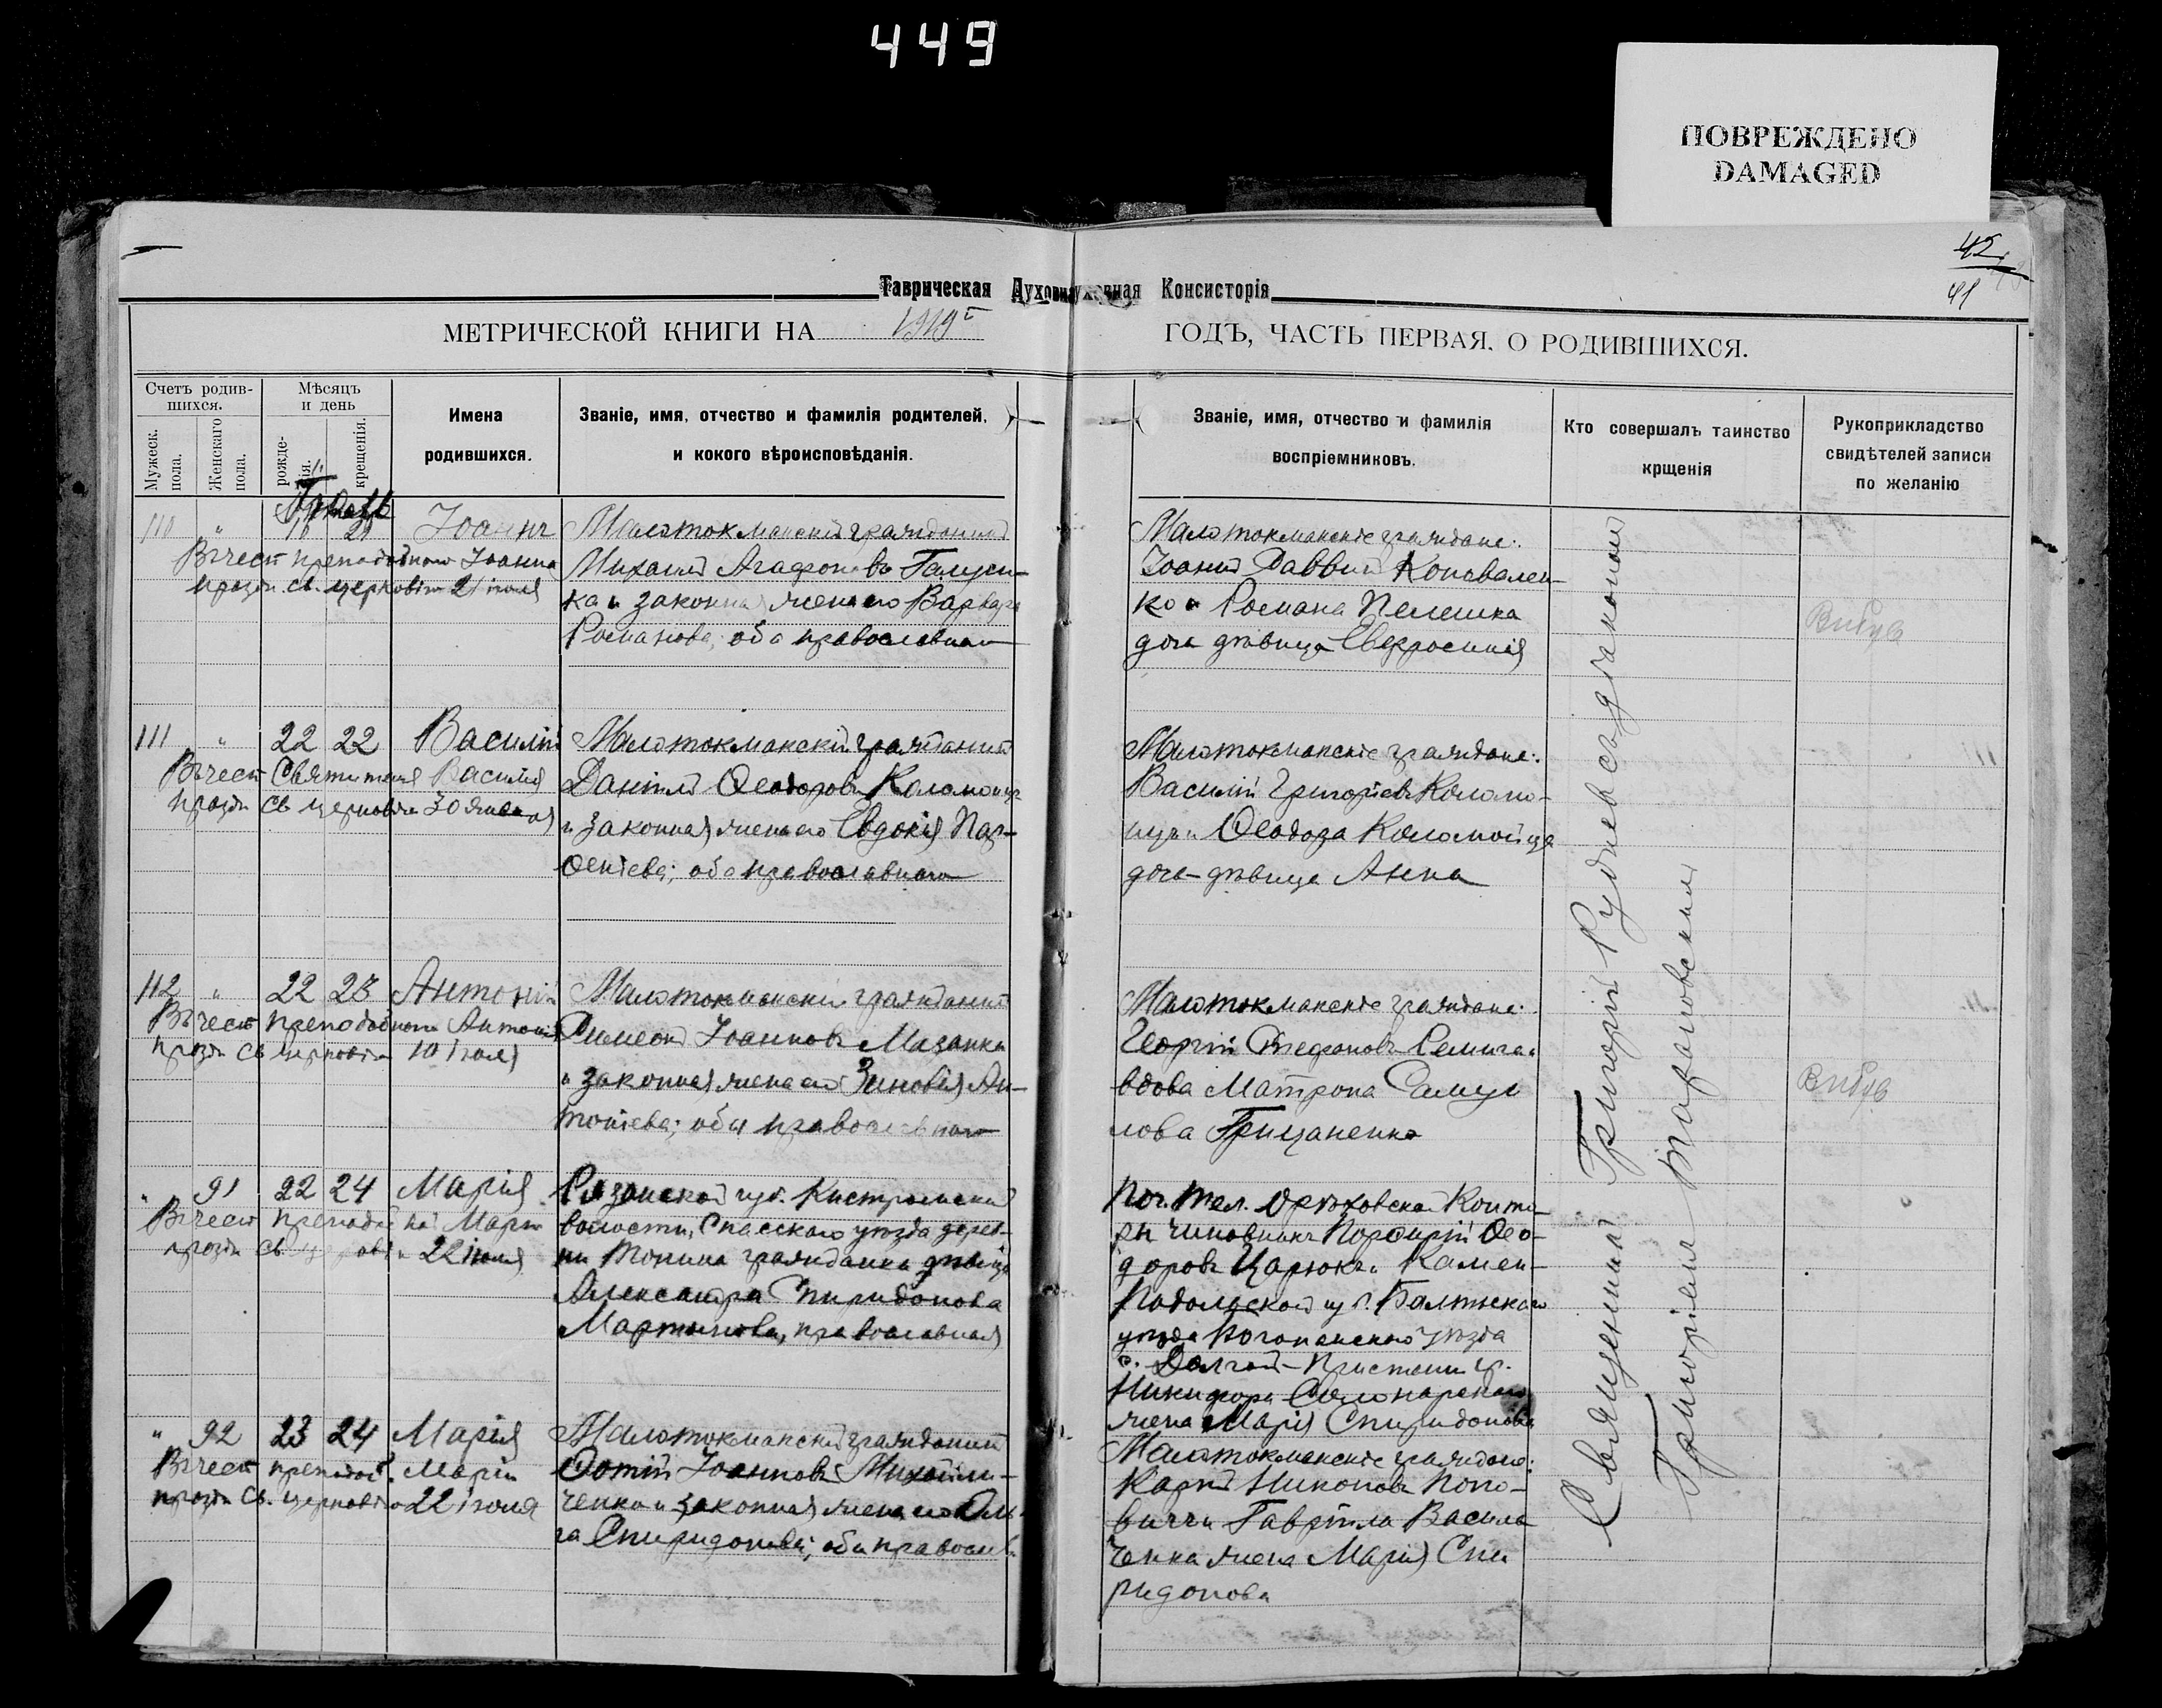 449
ПОВРЕЖДЕНО
DAMAGED
42
41
Таврическая Духовная Консисторія
МЕТРИЧЕСКОЙ КНИГИ НА 1919 г
ГОДЪ, ЧАСТЬ ПЕРВАЯ. О РОДИВШИХСЯ.
Счетъ родив-
шихся.
Мужеск.
пола.
Женскаго
пола.
Мѣсяцъ
и день
рожде-
нія.
крещенія.
Имена
родившихся.
Званіе, имя, отчество и фамилія родителей,
и кокого вѣроисповѣданія.
Званіе, имя, отчество и фамилія
воспріемниковъ.
Кто совершалъ таинство
крщенія
Рукоприкладство
свидѣтелей записи
по желанію
110 " Іоаннъ
Въ честь преподобнаго Іоанна
празд. св. церковію 21 іюля
Малотокмакскій гражданинъ
Михаилъ Агафоновъ Галущен-
ка и законная жена его Варвара
Романова; оба православнаго
Малотокмакскіе граждане:
Іоаннъ Даввидовъ Коновален-
ко и Романа Пелешка
дочь дѣвица Евфросинія
Вибув
111 " 22 22 Василій
Въ честь Святителя Василія
празд. св церковію 30 Января
Малотокмакскій гражданинъ
Даніилъ Ѳеодоровъ Коломоецъ
и законная жена его Евдокія Пар-
ѳеніева; оба православнаго
Малотокмакскіе граждане:
Василій Григоріевъ Коломо-
ецъ и Ѳеодора Коломойца
дочь-дѣвица Анна
112 " 22 23 Антоній
Въ честь преподобнаго Антонія
празд. св церковію 10 іюля
Малотокмакскій гражданинъ
Симеонъ Іоанновъ Мазанка
и законная жена его Зиновія Ан-
тоніева; оба православнаго
Малотокмакскіе граждане:
Георгій Стефановъ Семига и
вдова Матрона Самуи
лова Грицаненко
Вибув
" 91 22 24 Марія
Въ честь преподобной Маріи
празд. св церковію 22 іюля
Рязанской губ. Кистромской
волости, Спасскаго уѣзда дерев-
ни Тонина гражданка дѣвица
Александра Спиридонова
Мартынова, православная
Поч. Тел. Орѣховской Конто-
ры чиновникъ Порфирій Ѳео-
доровъ Царюкъ и Камен-
Подольской губ. Балтскаго
уѣзда
с. Долгой-Пристани гр.
Никифора
жена Марія Спиридонова
" 92 23 24 Марія
Въ честь преподоб. Маріи
празд. св. церковію 22 іюля
Малотокмакскій гражданинъ
Фотій Іоанновъ Михайли-
ченко и законная жена его Оль-
га Спиридонова; оба правосл.
Малотокмакскіе граждане:
Карпъ Никоновъ Попо-
вичъ и Гавріила Василь
ченка жена Марія Спи
ридонова
Священникъ Григорій Рудневъ съ діакономъ
Григоріемъ Тарановскимъ